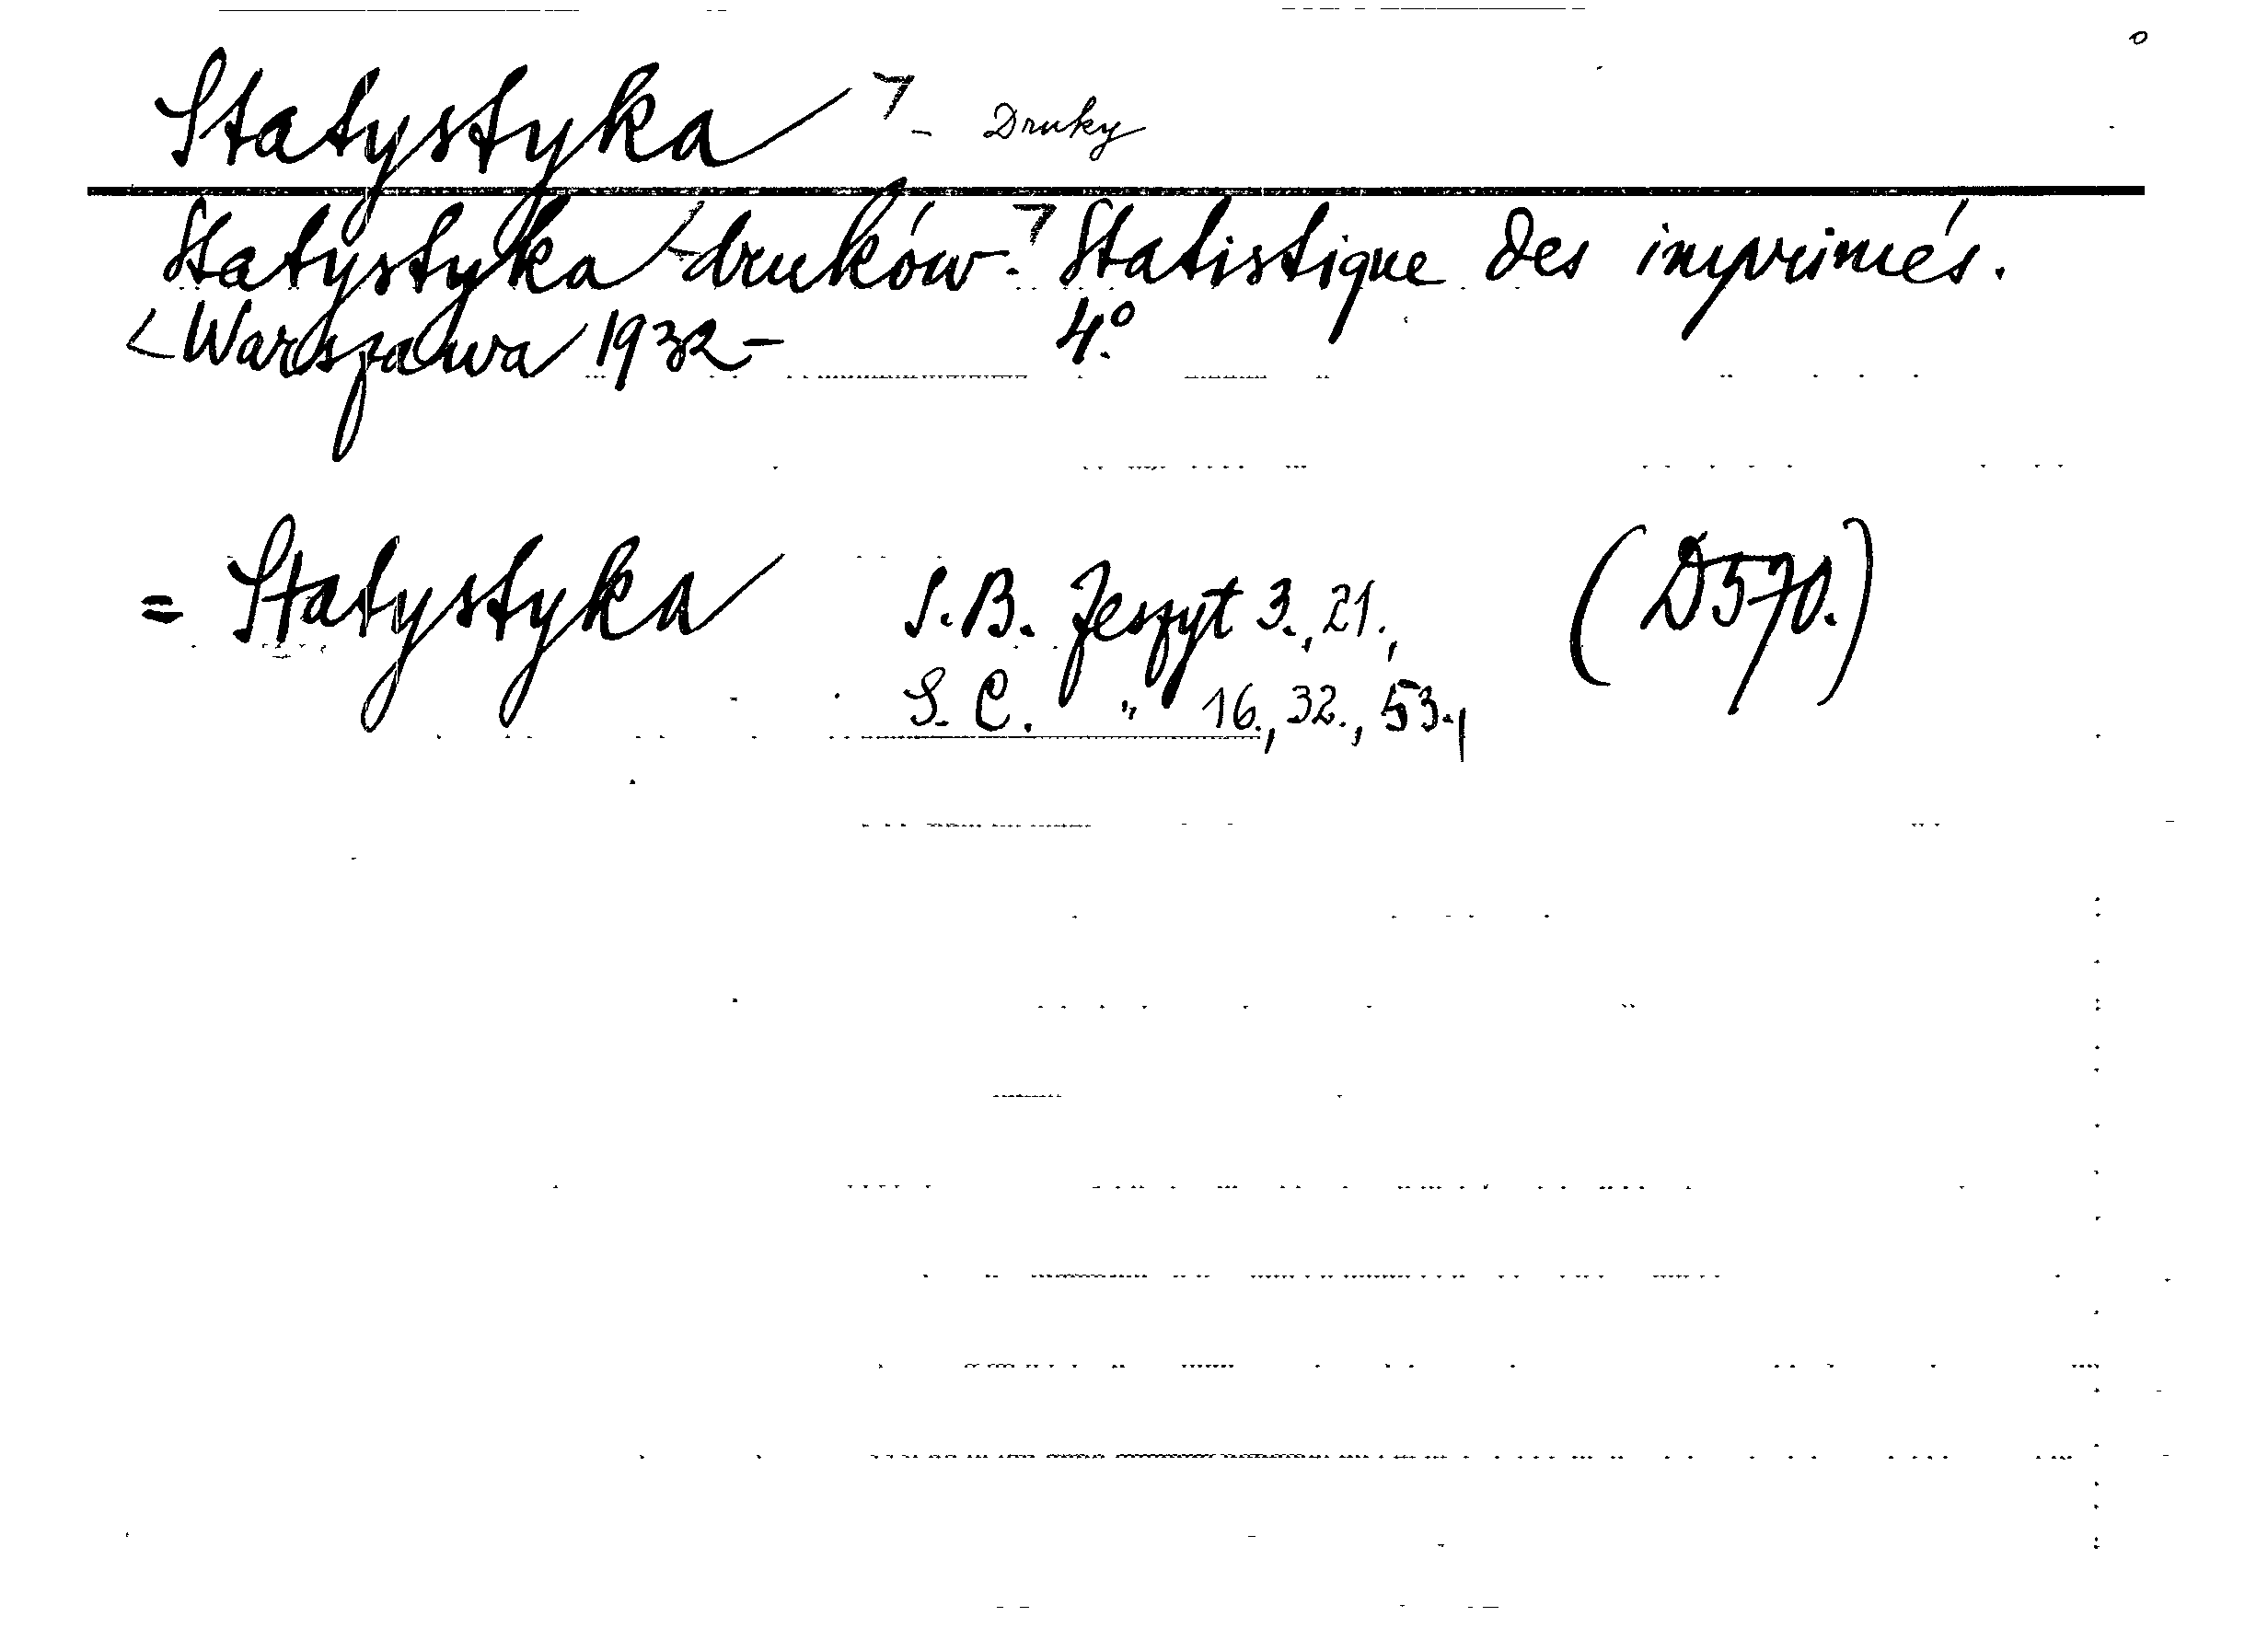 Statystyka - Druky
Statystyka druków. Statistique des imprimés.
Warszawa 1932- 4°.
= Statystyka S.B. Zeszyt 3., 21., (D570.)
S. C. " 16., 32., 53.,